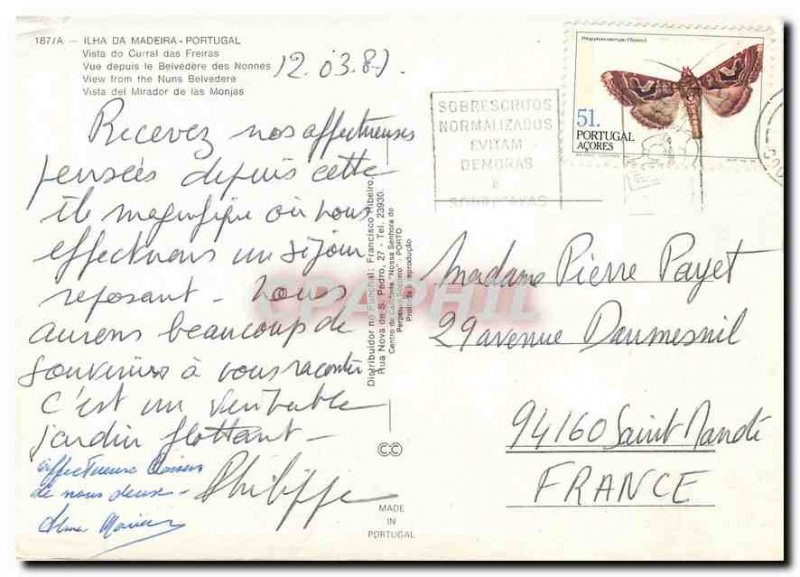 187/A — ILHA DA MADEIRA - PORTUGAL
Vista do Curral das Freiras
Vue depuis le Belvédère des Nonnes
View from the Nuns Belvedere
Vista del Mirador de las Monjas
12.03.87.
Recevez nos affectueuses
pensées depuis cette
île magnifique où nous
effectuons un séjour
reposant - nous
aurons beaucoup de
souvenirs à vous raconter
C'est un véritable
jardin flottant -
Philippe
affectueux baisers
de nous deux -
Distribuidor no Funchal: Francisco Ribeiro
Rua Nova de S. Pedro, 27 - Tel. 23930.
Centro de Caridade "Nossa Senhora do
Perpétuo Socorro" - PORTO
Proibida a reprodução
CPAPHIL
CC
MADE
IN
PORTUGAL
SOBRESCRITOS
NORMALIZADOS
EVITAM
DEMORAS
E
SOBRETAXAS
51.
PORTUGAL
AÇORES
Madame Pierre Payet
29 avenue Daumesnil
94160 Saint Mandé
FRANCE